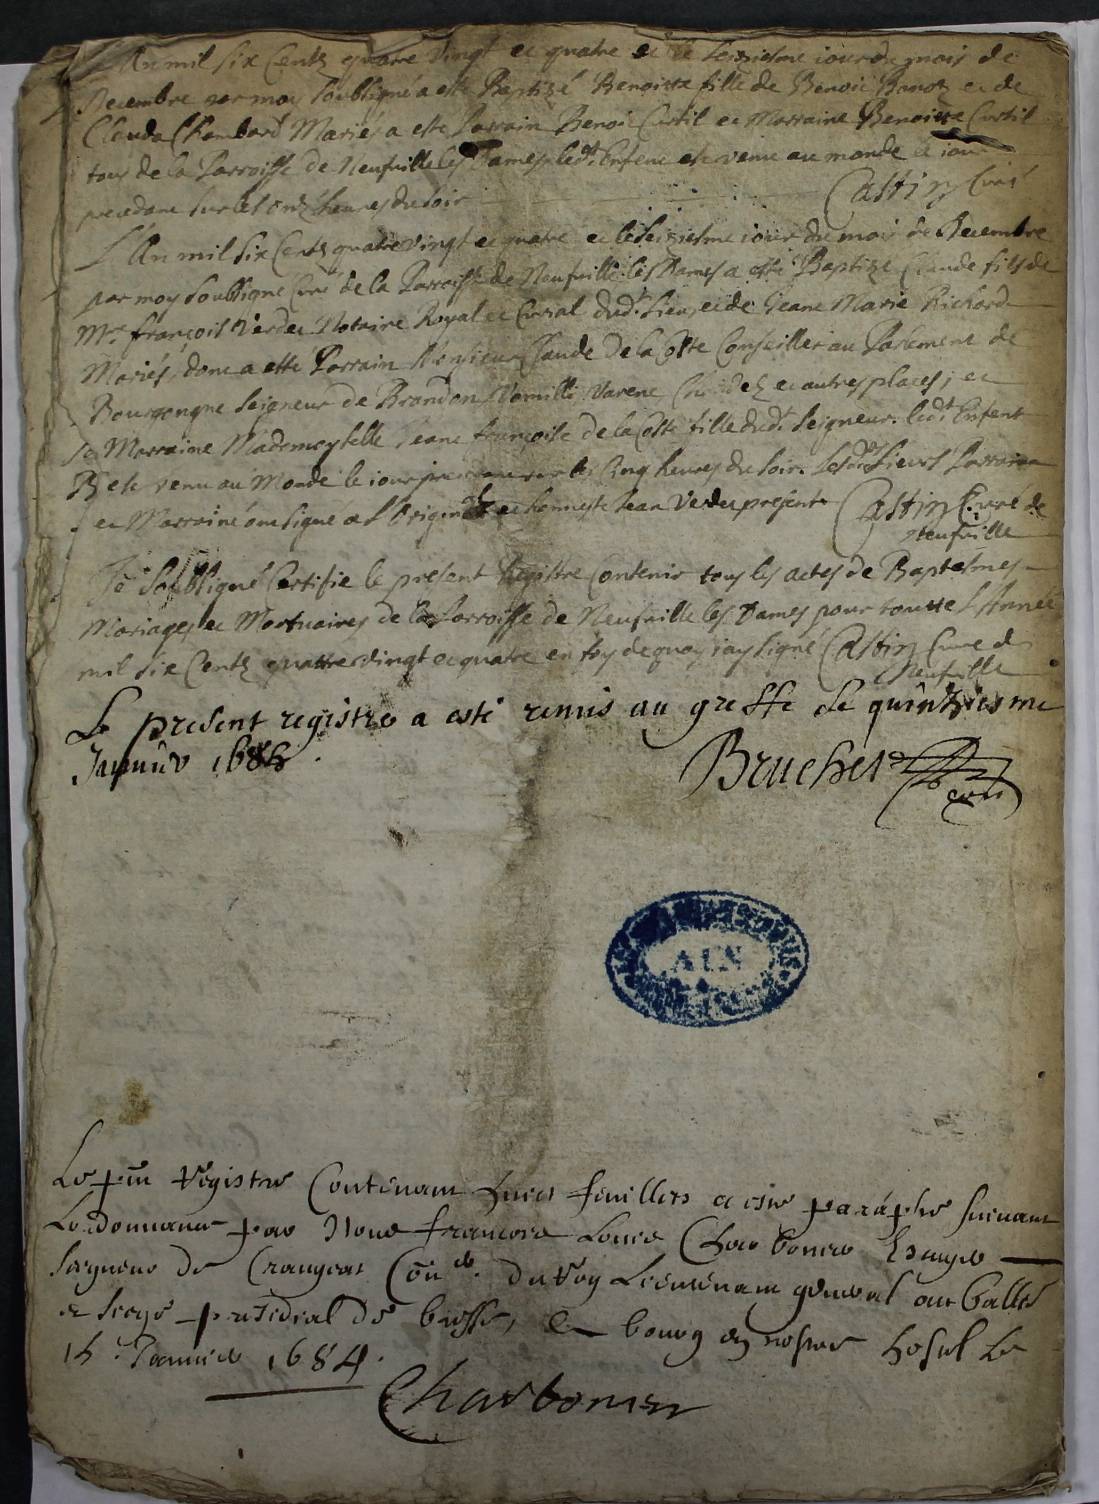 L'An mil six Centz quatre Vingt et quatre et le seiziesme iour du mois de
Decembre par moy soubsigné a esté Baptizé Benoitte fille de Benoit et de
Clauda Chambard Mariés a esté Parrain Benoi Curtil et Marraine Benoitte Curtil
tous de la Parroisse de Neufville les Dames ledt Enfent est venu au monde le iour
precedant sur les onze heures du soir Castin Curé
L'An mil six Centz quatre vingt et quatre et le seiziesme iour du mois de Decembre
par moy soubsigné Curé de la Parroisse de Neufville les Dames a esté Baptizé Claude fils de
Mre françois Verdet Notaire Royal et Curial dudt Lieu, et de Jeane Marie Richard
Mariés, dont a esté Parrain Monsieur Claude de la Coste Conseiller au Parlement de
Bourgongne Seigneur de Brandon Varene et autres places; et
sa Marraine Mademoyselle Jeane françoise de la Coste fille dudt Seigneur. ledt Enfent
est venu au Monde le iour precedant sur les Cinq heures du soir. Lesdts Sieurs Parrain
et Marraine ont signé a l'Original et honneste Jean Verdet present Castin Curé de
Neufville
Je Soubsigné Certifie le present Registre Contenir tous les actes de Baptesmes
Mariages et Mortuaires de la Parroisse de Neufville les Dames pour toutte l'Année
mil six Centz quattre vingt et quatre en foy de quoy i'ay signé Castin Curé de
Neufville
Le present registre a esté remis au greffe le quinziesme
Janvier 1685.
Bruchet
AIN
Le pnt Registre Contenant huict feuillets a esté paraphé suivant
Lordonnance par Nous francois Louis Charbonnier Escuyer
Seigneur de Crangeac Conler. du Roy Lieutenant general au balliage
et siege presidial de bresse, A bourg en nostre hostel le
15 Janvier 1684.
Charbonier